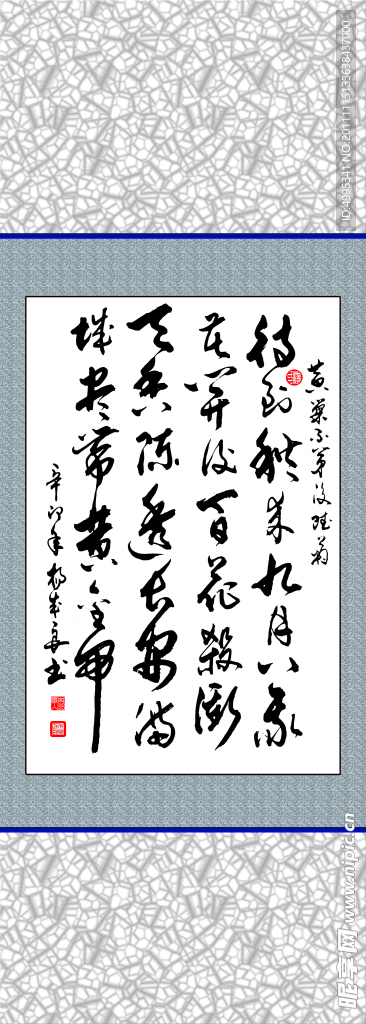 黄巢不第後赋菊
待到秋来九月八我
花開後百花殺衝
天香陣透長安滿
城尽带黄金甲
辛卯年 书
ID:4995341 NO:20111115133638437000
昵享网 www.nipic.cn